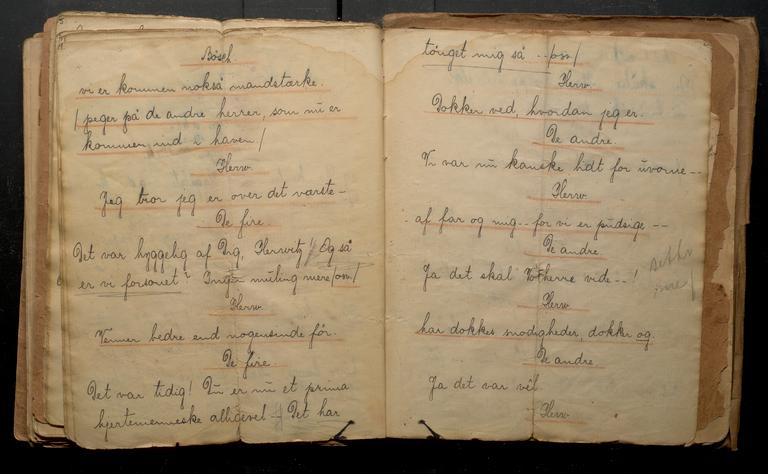 Bösch.
vi er kommen nokså mandstærke.
/peger på de andre herrer, som nu er
kommen ind i haven/
Herw.
Jeg tror jeg er over det værste –
De fire.
Det var hyggelig af Dig, Herwitz! Og så
er vi forsonet? Ingen muling mere/osv/
Herw.
Venner bedre end nogensinde før.
De fire.
Det var tidig! Du er nu et prima
hjertemenneske alligevel – Det har
tönget mig så --/osv/
Herw.
Dokker ved, hvordan jeg er.
De andre.
Vi var nu kanske lidt for uvorne --
Herw.
af far og mig -- for vi er pudsige --
De andre.
Ja det skal herre vide --!
Herw.
har dokkes snodigheder, dokker og.
De andre.
Ja det var vel.
Herw.